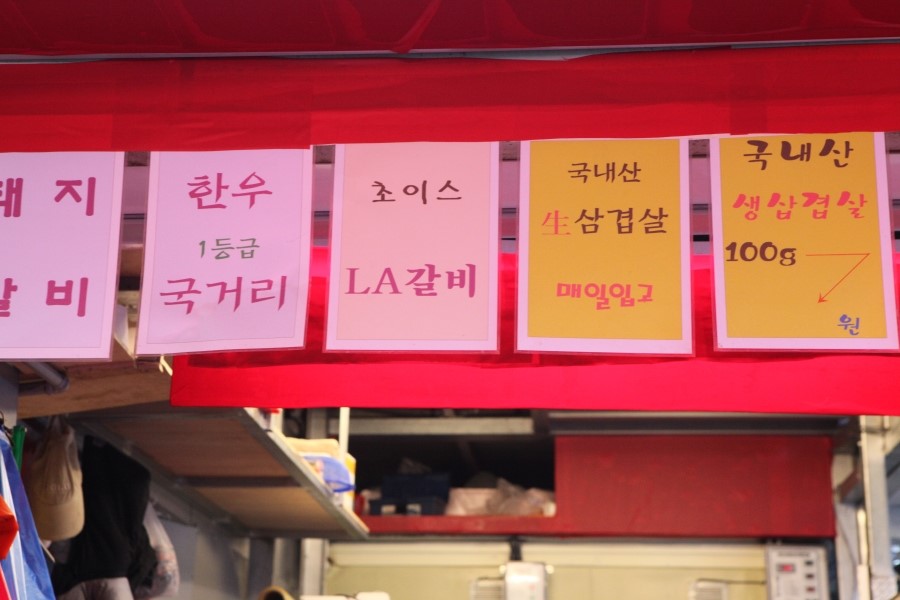 돼지
갈비
한우
1등급
국거리
초이스
LA갈비
국내산
生삼겹살
매일입고
국내산
생삼겹살
100g
원